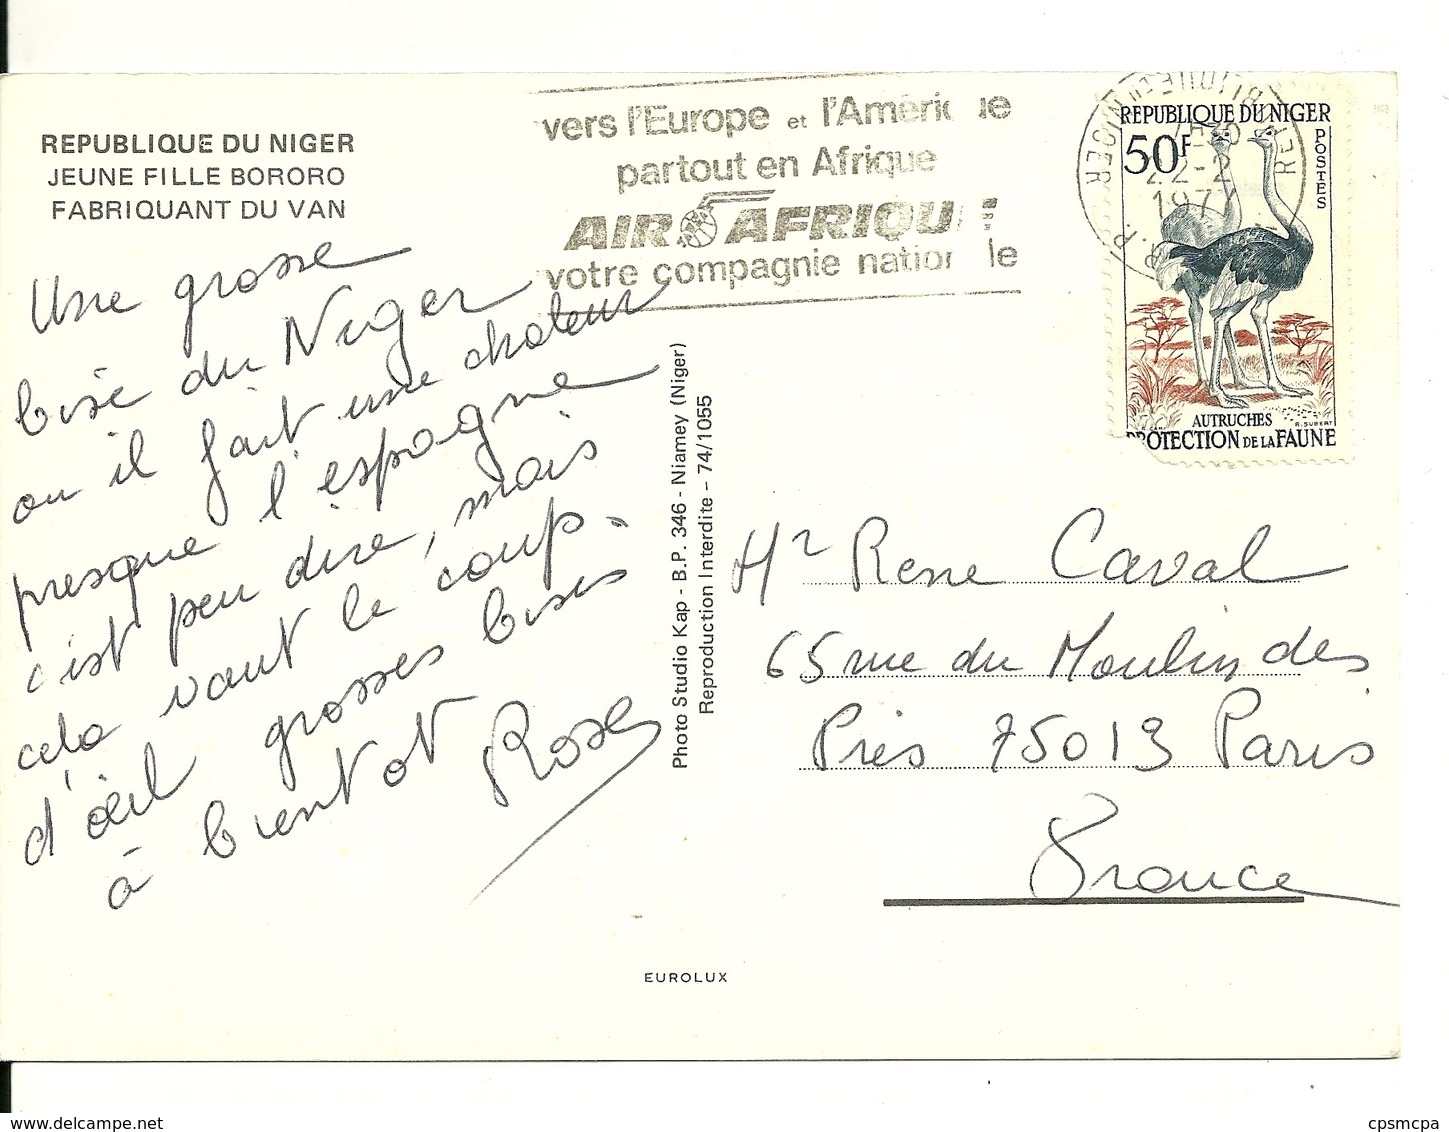 REPUBLIQUE DU NIGER
JEUNE FILLE BORORO
FABRIQUANT DU VAN
Une grosse
bise du Niger
ou il fait une chaleur
presque l'espagne
c'est peu dire, mais
cela vaut le coup
d'œil grosses bises
à bientot Rose
vers l'Europe et l'Amérique
partout en Afrique
AIR AFRIQUE
votre compagnie nationale
22-2
1977
REPUBLIQUE DU NIGER
50F
POSTES
AUTRUCHES
R. SUBERT
PROTECTION DE LA FAUNE
Photo Studio Kap - B.P. 346 - Niamey (Niger)
Reproduction Interdite - 74/1055
Mr Rene Caval
65 rue du Moulin des
Près 75013 Paris
France
EUROLUX
cpsmcpa